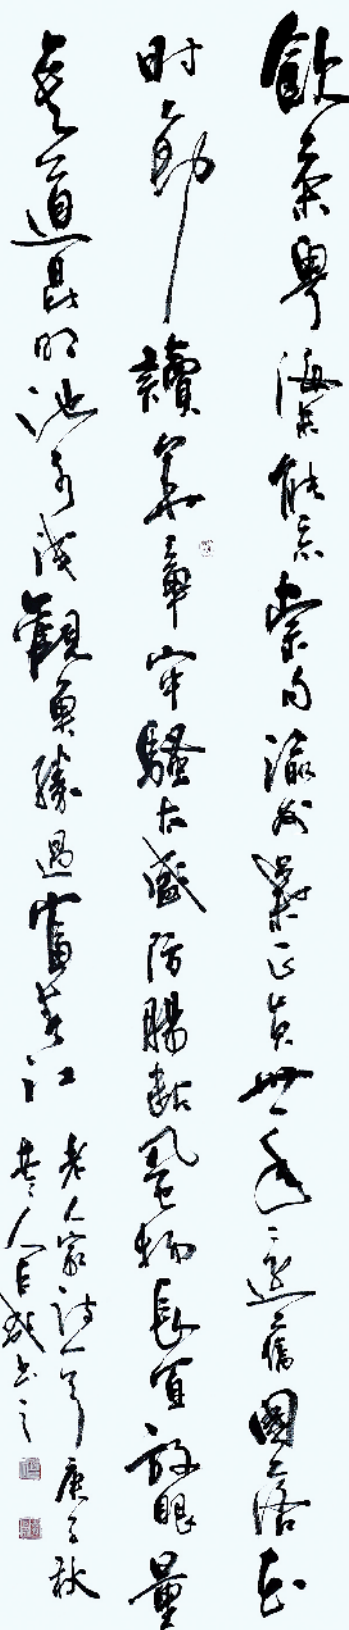 飲茶粤海未能忘索句渝州葉正黄卅一年還舊國落花
时節讀華章牢騷太盛防腸断風物長宜放眼量
莫道昆明池水浅觀魚勝過富春江
老人家诗一首庚子秋